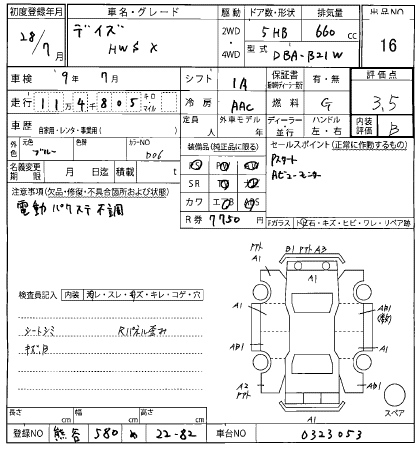 初度登録年月 車名・グレード 駆動 ドア数・形状 排気量 出品NO
28/7月 デイズ 2WD 5HB 660cc 16
HWS X 4WD 型式 DBA-B21W
車検 9年 7月 シフト IA 保証書 有・無 評価点
走行 11万4千805 キロ・マイル 冷房 AAC 燃料 G 3,5
車歴 自家用・レンタ・事業用( ) 定員 人 外車モデル 年 ディーラー 並行 ハンドル 左・右 内装評価 B
外色 元色 ブルー 色替 カラーNO D06 装備品(純正品に限る) セールスポイント(正常に作動するもの)
名義変更期限 月 日迄 積載 t PS PW Pスタート
SR Aビューモニター
注意事項(欠品・修復・不具合箇所および状態) カワ エアB ABS
電動パワステ不調 R券 7750 円 Fガラス 飛石・キズ・ヒビ・ワレ・リペア跡
A1 B1 A3
A1
検査員記入 内装 スレ・キズ・キレ・コゲ・穴 A1 AB1
シートシミ Rパネル歪み
キズ,B A1 AB1
A2 A1 AB1
A1 スペア
長さ cm 幅 cm 高さ cm
登録NO 熊谷 580 め 22-82 車台NO 0323053